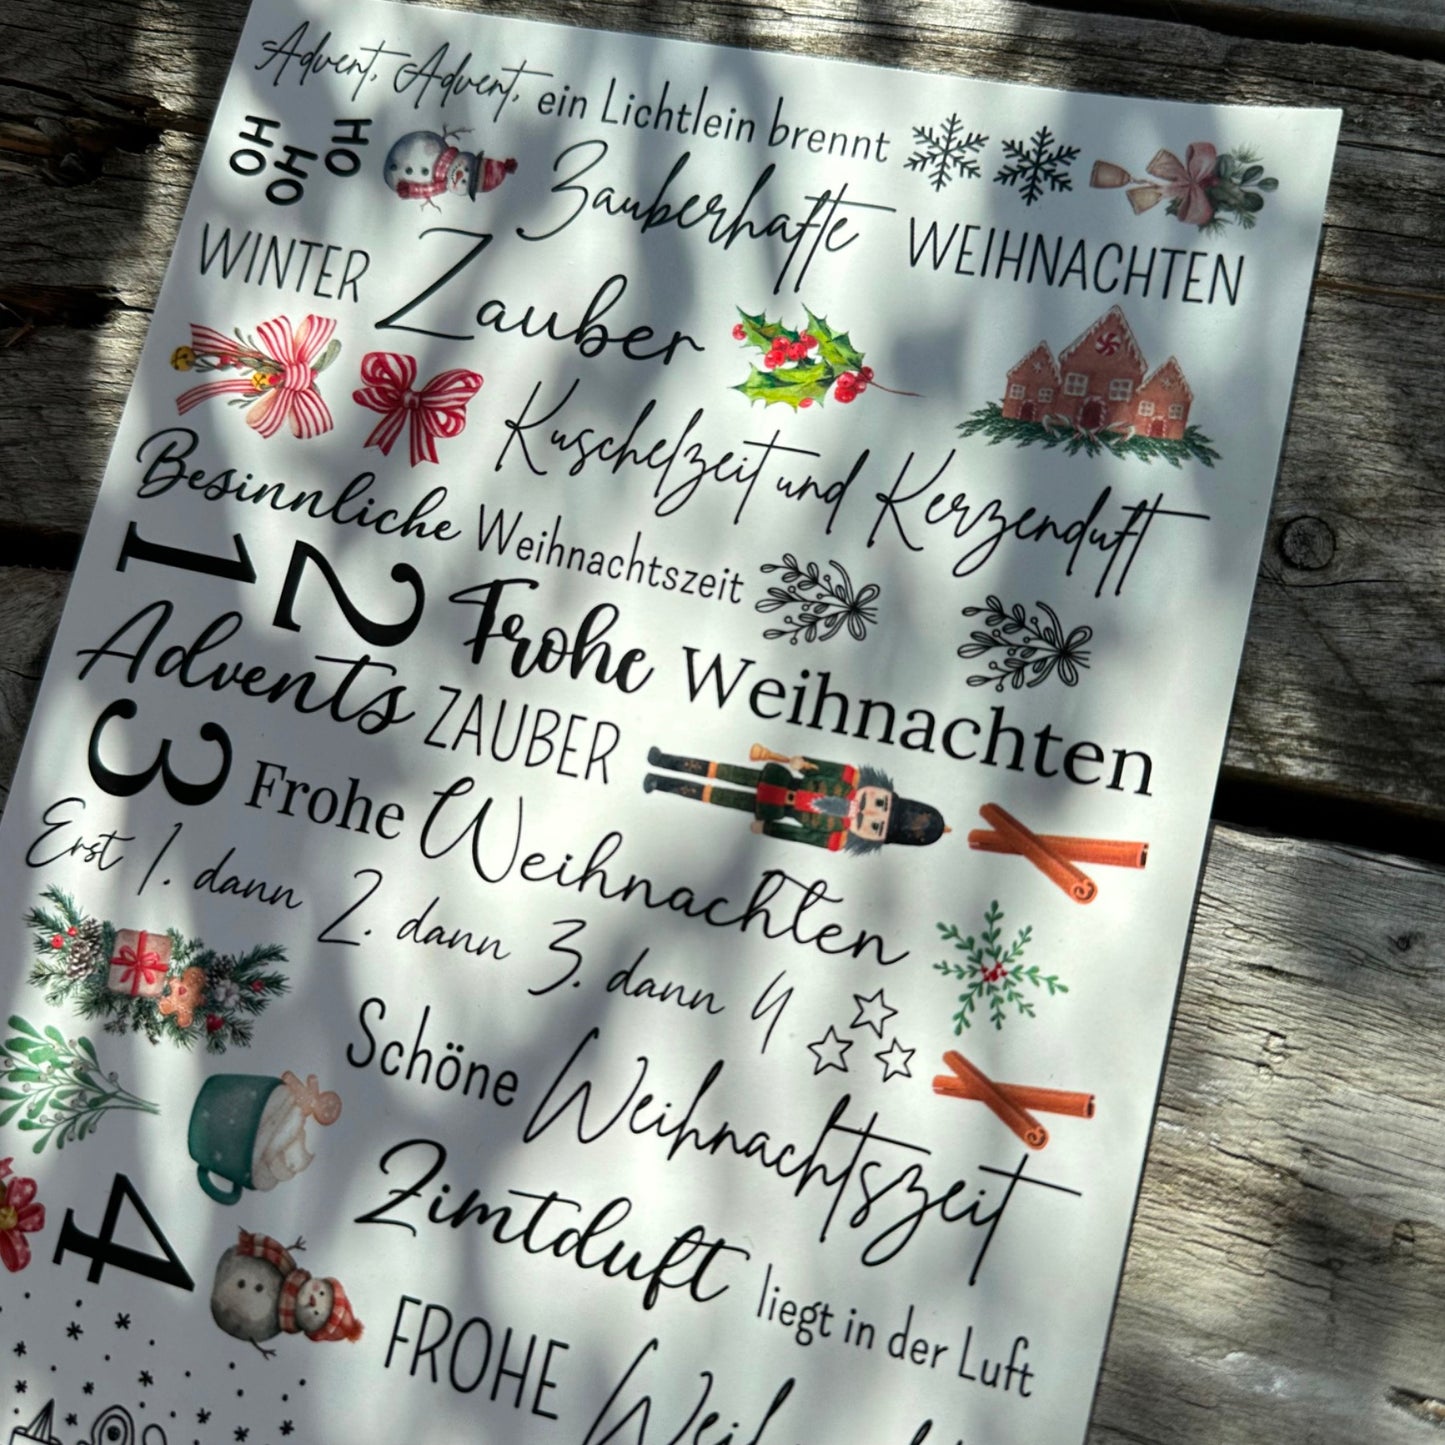 Advent, Advent, ein Lichtlein brennt
HO
HO
HO
Zauberhafte WEIHNACHTEN
WINTER Zauber
Kuschelzeit und Kerzenduft
Besinnliche Weihnachtszeit
1
2
Frohe Weihnachten
Advents ZAUBER
3
Frohe Weihnachten
Erst 1. dann 2. dann 3. dann 4
Schöne Weihnachtszeit
4
Zimtduft liegt in der Luft
FROHE